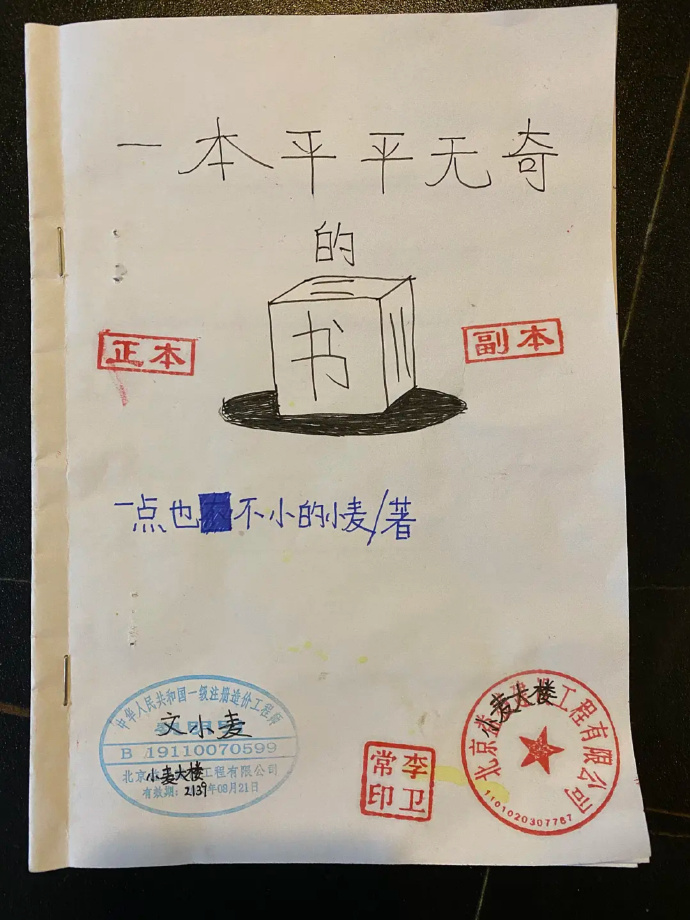 一本平平无奇
的
书
正本
副本
一点也不小的小麦/著
中华人民共和国一级注册造价工程师
文小麦
B 19110070599
北京小麦大楼工程有限公司
有效期：2139年08月21日
李卫
常印
北京小麦大楼工程有限公司
1101020307787